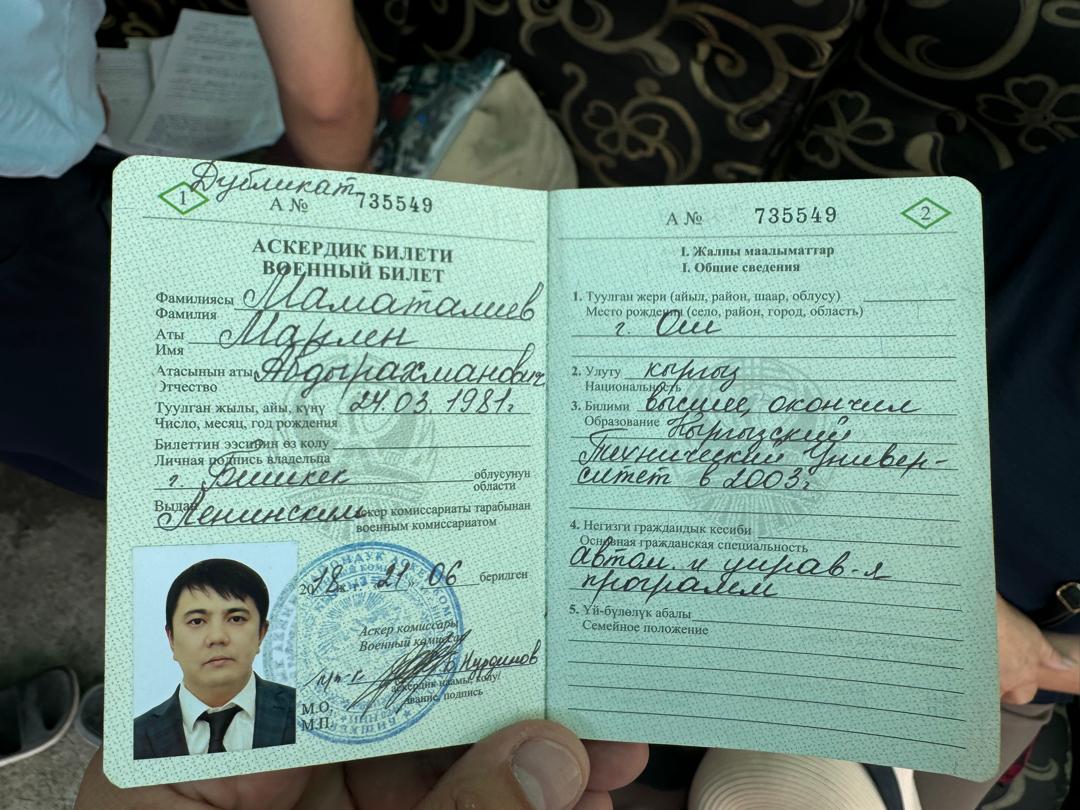 1
Дубликат
А № 735549
АСКЕРДИК БИЛЕТИ
ВОЕННЫЙ БИЛЕТ
Фамилиясы
Фамилия Маматалиев
Аты
Имя Марлен
Атасынын аты
Отчество Абдырахманович
Туулган жылы, айы, күнү 24.03.1981г
Число, месяц, год рождения
Билеттин ээсинин өз колу
Личная подпись владельца
г. Бишкек облусунун
области
Выдан Ленинским аскер комиссариаты тарабынан
военным комиссариатом
2018 ж. г. 21 06 берилген
Аскер комиссары
Военный комиссар
Нурдинов
аскердик наамы, колу/
звание, подпись
М.О.
М.П.
А № 735549
2
I. Жалпы маалыматтар
I. Общие сведения
1. Туулган жери (айыл, район, шаар, облусу)
Место рождения (село, район, город, область)
г. Ош
2. Улуту кыргыз
Национальность
3. Билими высшее, окончил
Образование Кыргызский
Технический Универ-
ситет в 2003г
4. Негизги граждандык кесиби
Основная гражданская специальность
автом. и управ-я
программ
5. Үй-бүлөлүк абалы
Семейное положение